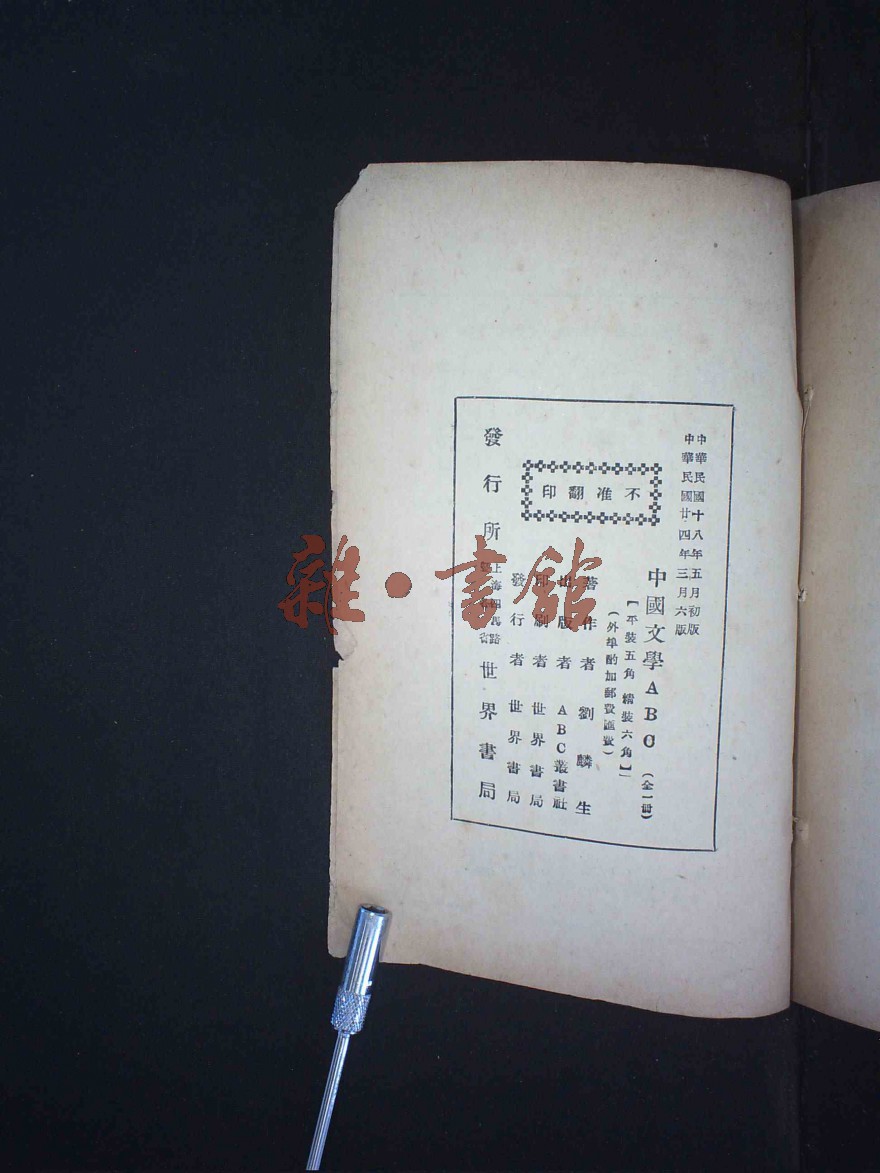 中華民國十八年五月初版
中華民國廿四年三月六版
中國文學ABC（全一冊）
【平裝五角 精裝六角】
（外埠酌加郵費匯費）
不准翻印
著作者 劉麟生
出版者 ABC叢書社
印刷者 世界書局
發行者 世界書局
發行所 上海四馬路 世界書局
雜·書館